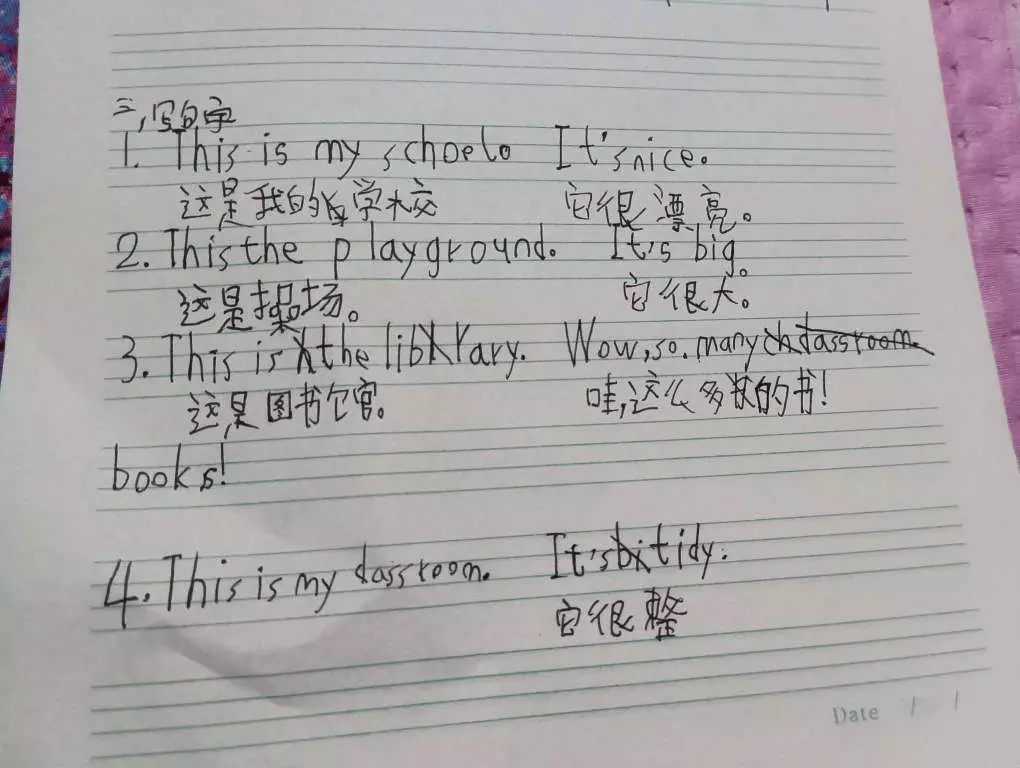 三,写句字
1. This is my schoelo It's nice.
这是我的学校 它很漂亮。
2. This the playground. It's big.
这是操场。 它很大。
3. This is the library. Wow, so many classroom.
这是图书馆。 哇,这么多的书!
books!
4. This is my classroom. It's tidy.
它很整
Date / /